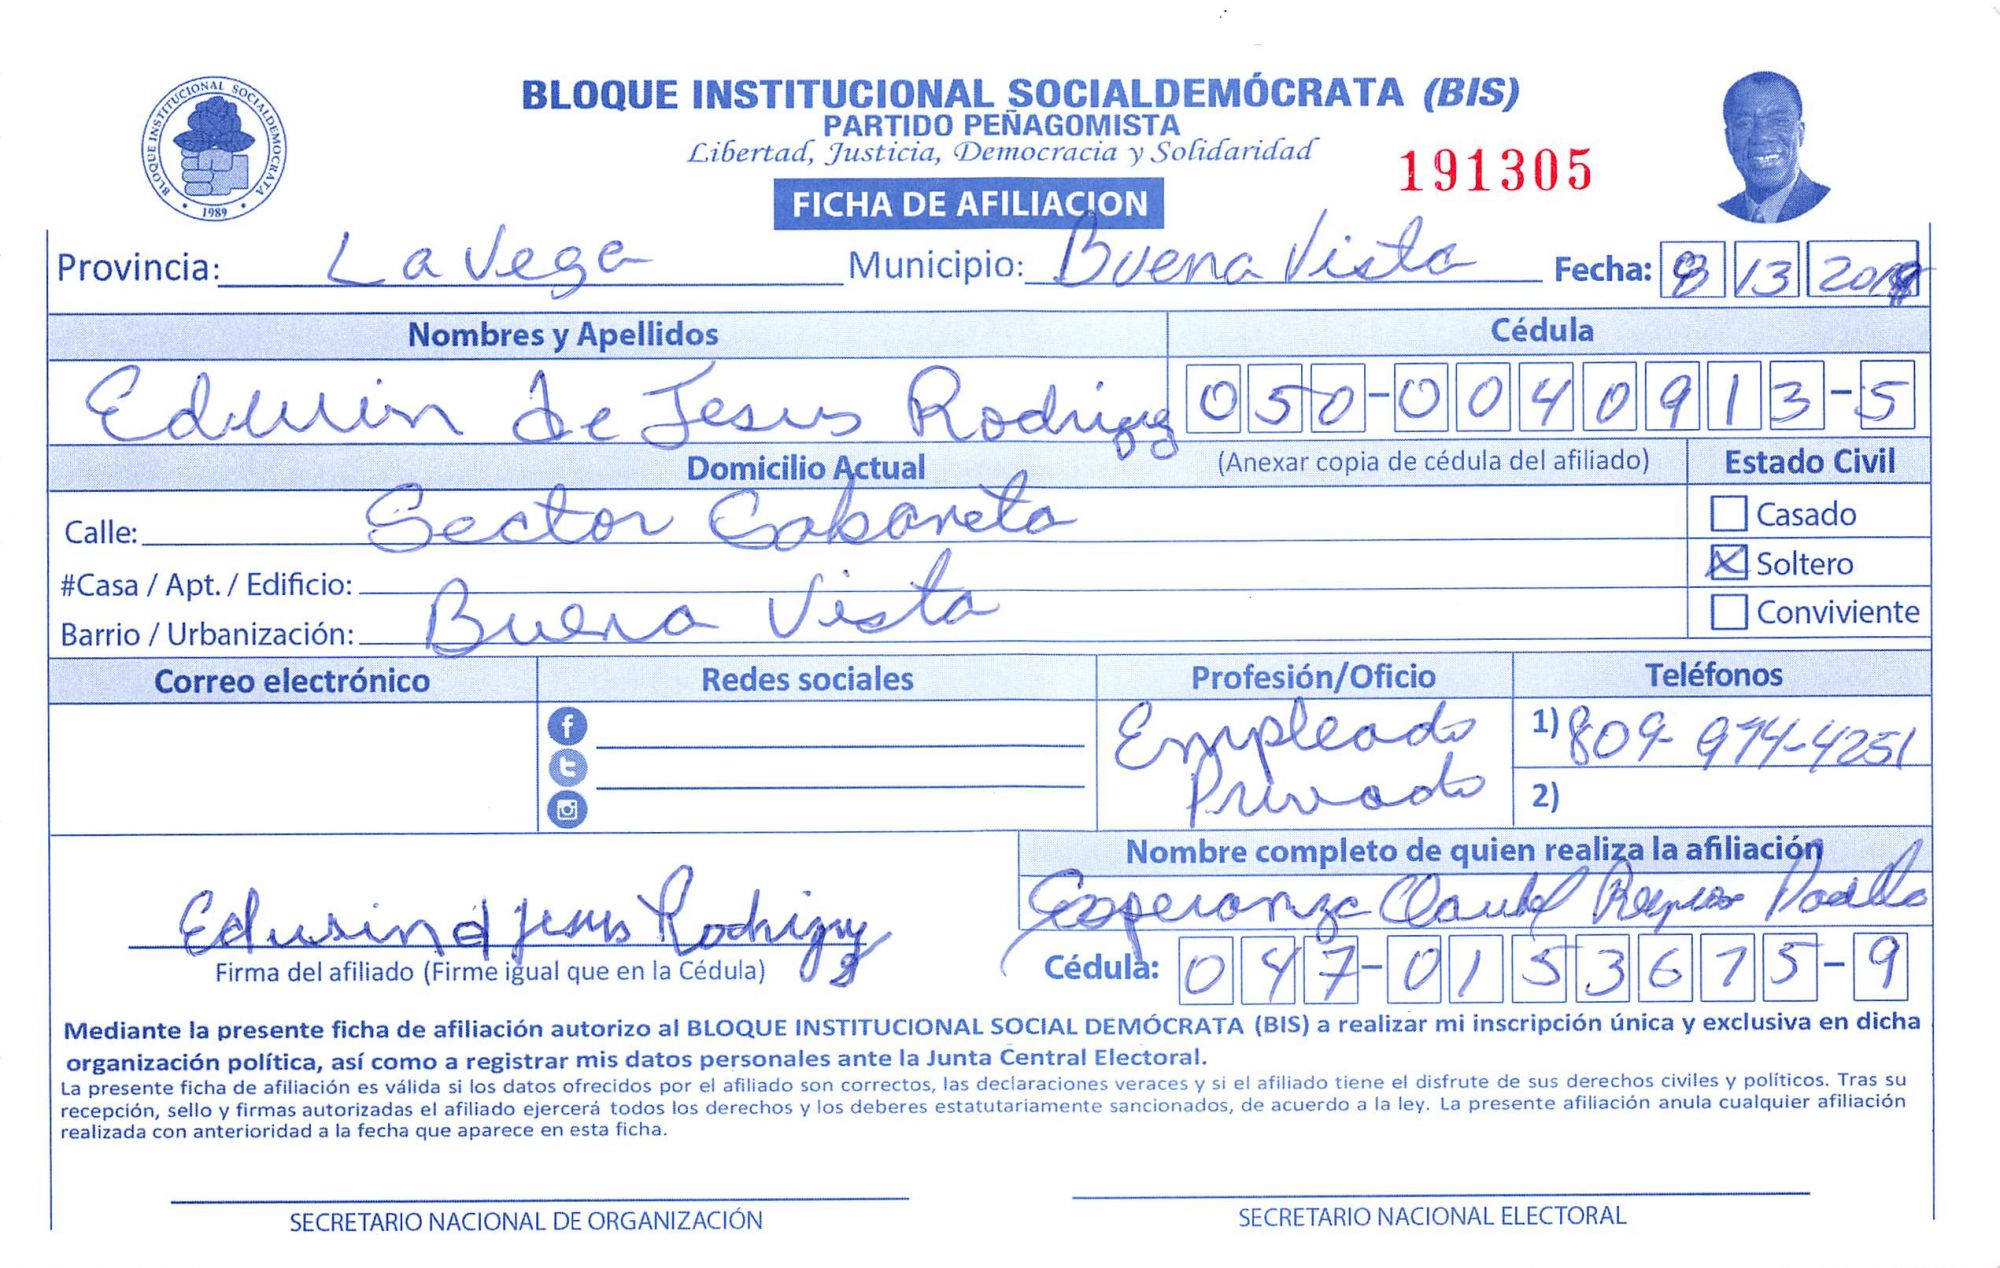 BLOQUE INSTITUCIONAL SOCIALDEMÓCRATA (BIS)
PARTIDO PEÑAGOMISTA
Libertad, Justicia, Democracia y Solidaridad
191305
BLOQUE INSTITUCIONAL SOCIALDEMOCRATA
1989
FICHA DE AFILIACION
Provincia: La Vega Municipio: Buena Vista Fecha: 8 13
Nombres y Apellidos Cédula
Edwin de Jesus Rodriguez 050-0040913-5
Domicilio Actual (Anexar copia de cédula del afiliado) Estado Civil
Calle: Sector Cabareta Casado
#Casa / Apt. / Edificio: X Soltero
Barrio / Urbanización: Buena Vista Conviviente
Correo electrónico Redes sociales Profesión/Oficio Teléfonos
Empleado 1) 809-974-4251
Privado 2)
Nombre completo de quien realiza la afiliación
Esperanza Reyes Padilla
Edwin d Jesus Rodriguez
Firma del afiliado (Firme igual que en la Cédula) Cédula: 047-0153675-9
Mediante la presente ficha de afiliación autorizo al BLOQUE INSTITUCIONAL SOCIAL DEMÓCRATA (BIS) a realizar mi inscripción única y exclusiva en dicha
organización política, así como a registrar mis datos personales ante la Junta Central Electoral.
La presente ficha de afiliación es válida si los datos ofrecidos por el afiliado son correctos, las declaraciones veraces y si el afiliado tiene el disfrute de sus derechos civiles y políticos. Tras su
recepción, sello y firmas autorizadas el afiliado ejercerá todos los derechos y los deberes estatutariamente sancionados, de acuerdo a la ley. La presente afiliación anula cualquier afiliación
realizada con anterioridad a la fecha que aparece en esta ficha.
SECRETARIO NACIONAL DE ORGANIZACIÓN SECRETARIO NACIONAL ELECTORAL